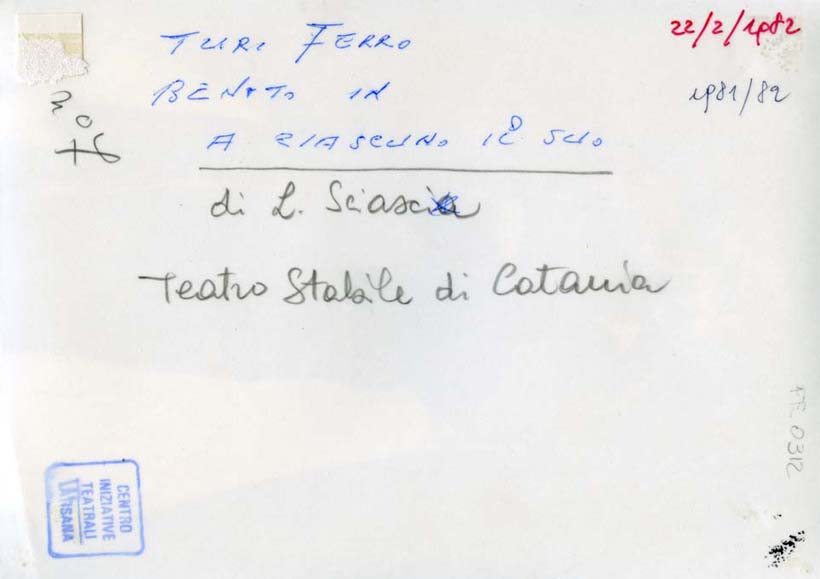 TURI FERRO
22/2/1982
BENATO IN
1981/82
A CIASCUNO IL SUO
di L. Sciascia
Teatro Stabile di Catania
ATR 0312
CENTRO
INIZIATIVE
TEATRALI
LATISANA